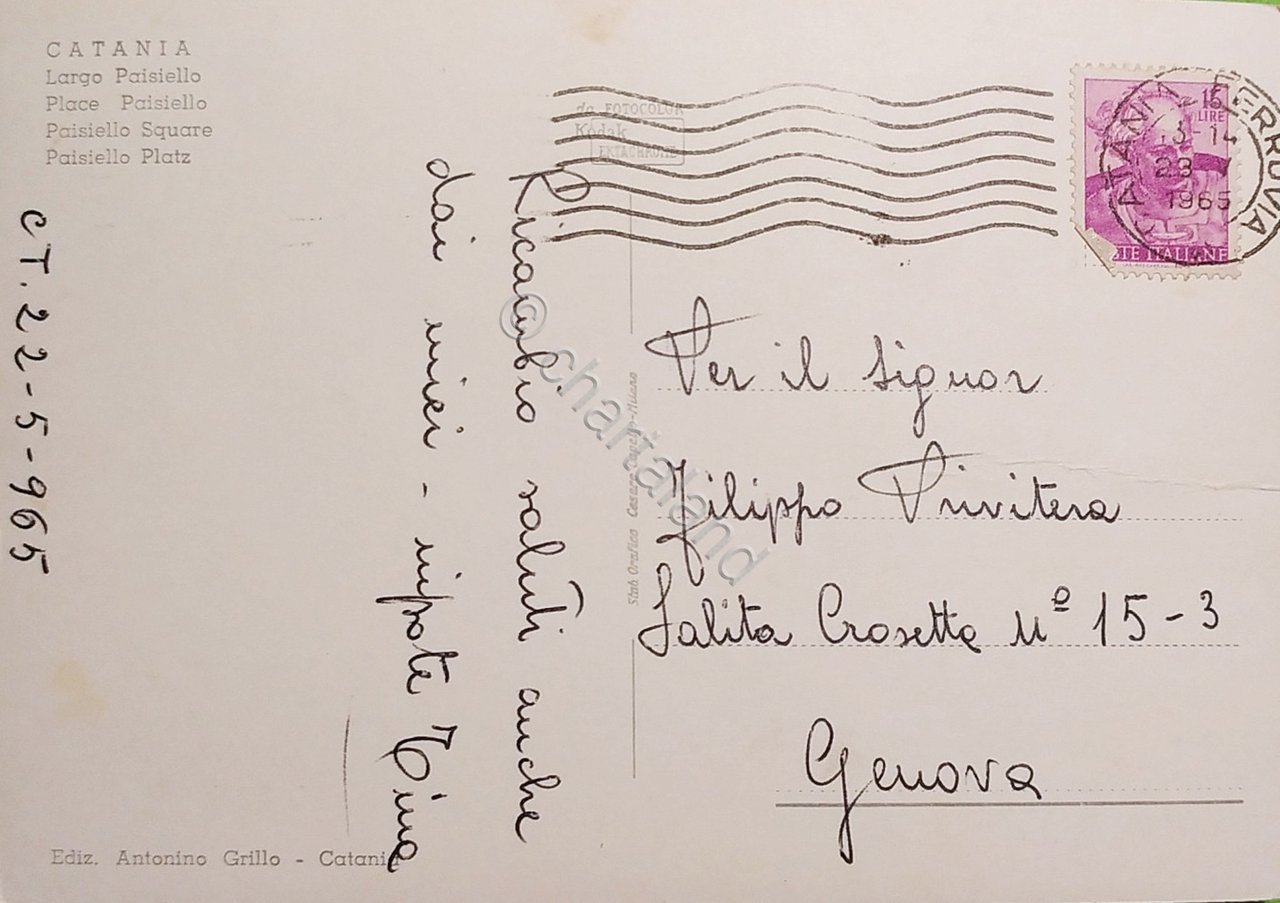 CATANIA
Largo Paisiello
Place Paisiello
Paisiello Square
Paisiello Platz
CT. 22-5-965
Ricambio saluti anche
dai miei - nipote Tina
Ediz. Antonino Grillo - Catania
da FOTOCOLOR
Kodak
EKTACHROME
Stab Grafico Cesare Capello-Milano
15
LIRE
STE ITALIANE
CATANIA FERROVIA
13-14
23 V
1965
Per il signor
Filippo Privitera
Salita Crosetta Nº 15-3
Genova
© chartaland